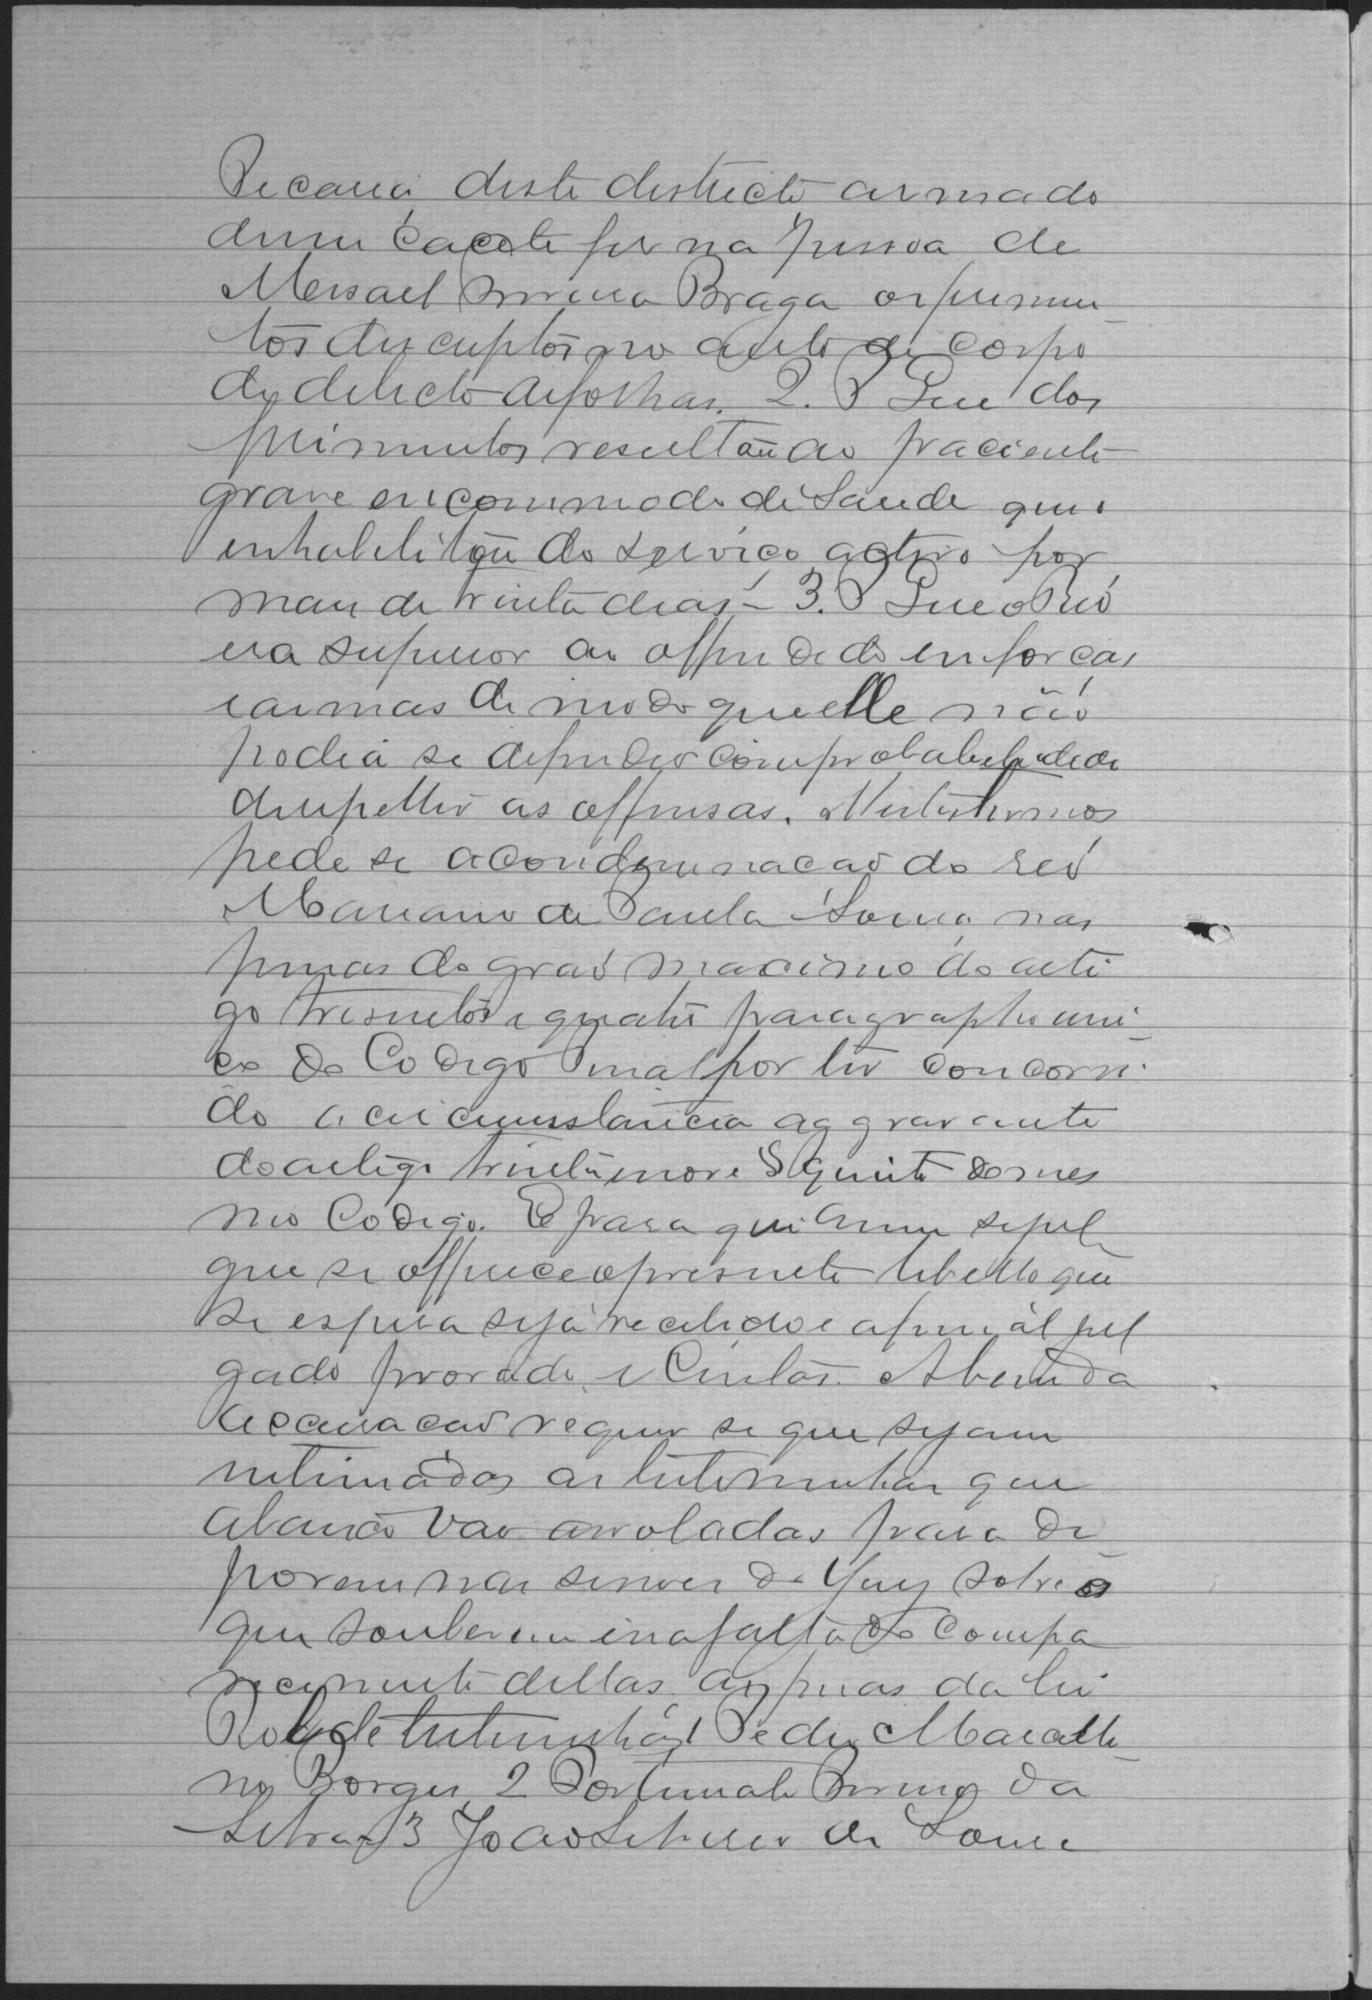 Pecaria deste destricto armado
dum cacete fez na pessoa de
Mesael Pereira Braga os ferimen
tos descriptos no auto de corpo
de delicto de folhas. 2. P Que dos
ferimentos resultou ao paciente
grave encommodo de Saude que o
enhabelitou do serviço activo por
mais de trinta dias - 3. P Que o Reó
era superior ao offendido em forças
e armas de modo que elle não
podia se defender com probabelidade
de repellir as offensas. Nestes termos
pede se a condemnacaõ do reó
Mariano de Paula Souza nas
penas do graó maximo do arti
go tresentos e quatro paragrapho uni
co do Codigo Penal por ter concorri
do a circumstancia aggravante
do artigo trinta e nove § quinto do mes
mo Codigo. E para que assim se julgue
que se offrece o presente libello que
se espera seja recebido e a final jul
gado provado. e Custas. A bem da
accusacaõ requer se que sejam
intimadas as testemunhas que
abaixo vaõ arroladas para de
porem nas sessões do Jury sobre o
que souberem e na falta do compa
recimento dellas as penas da lei
Rol de testemunhas 1 Pedro Marcelli
no Borges, 2 Fortunato Pereira da
Silva 3 João Silverio de Souza